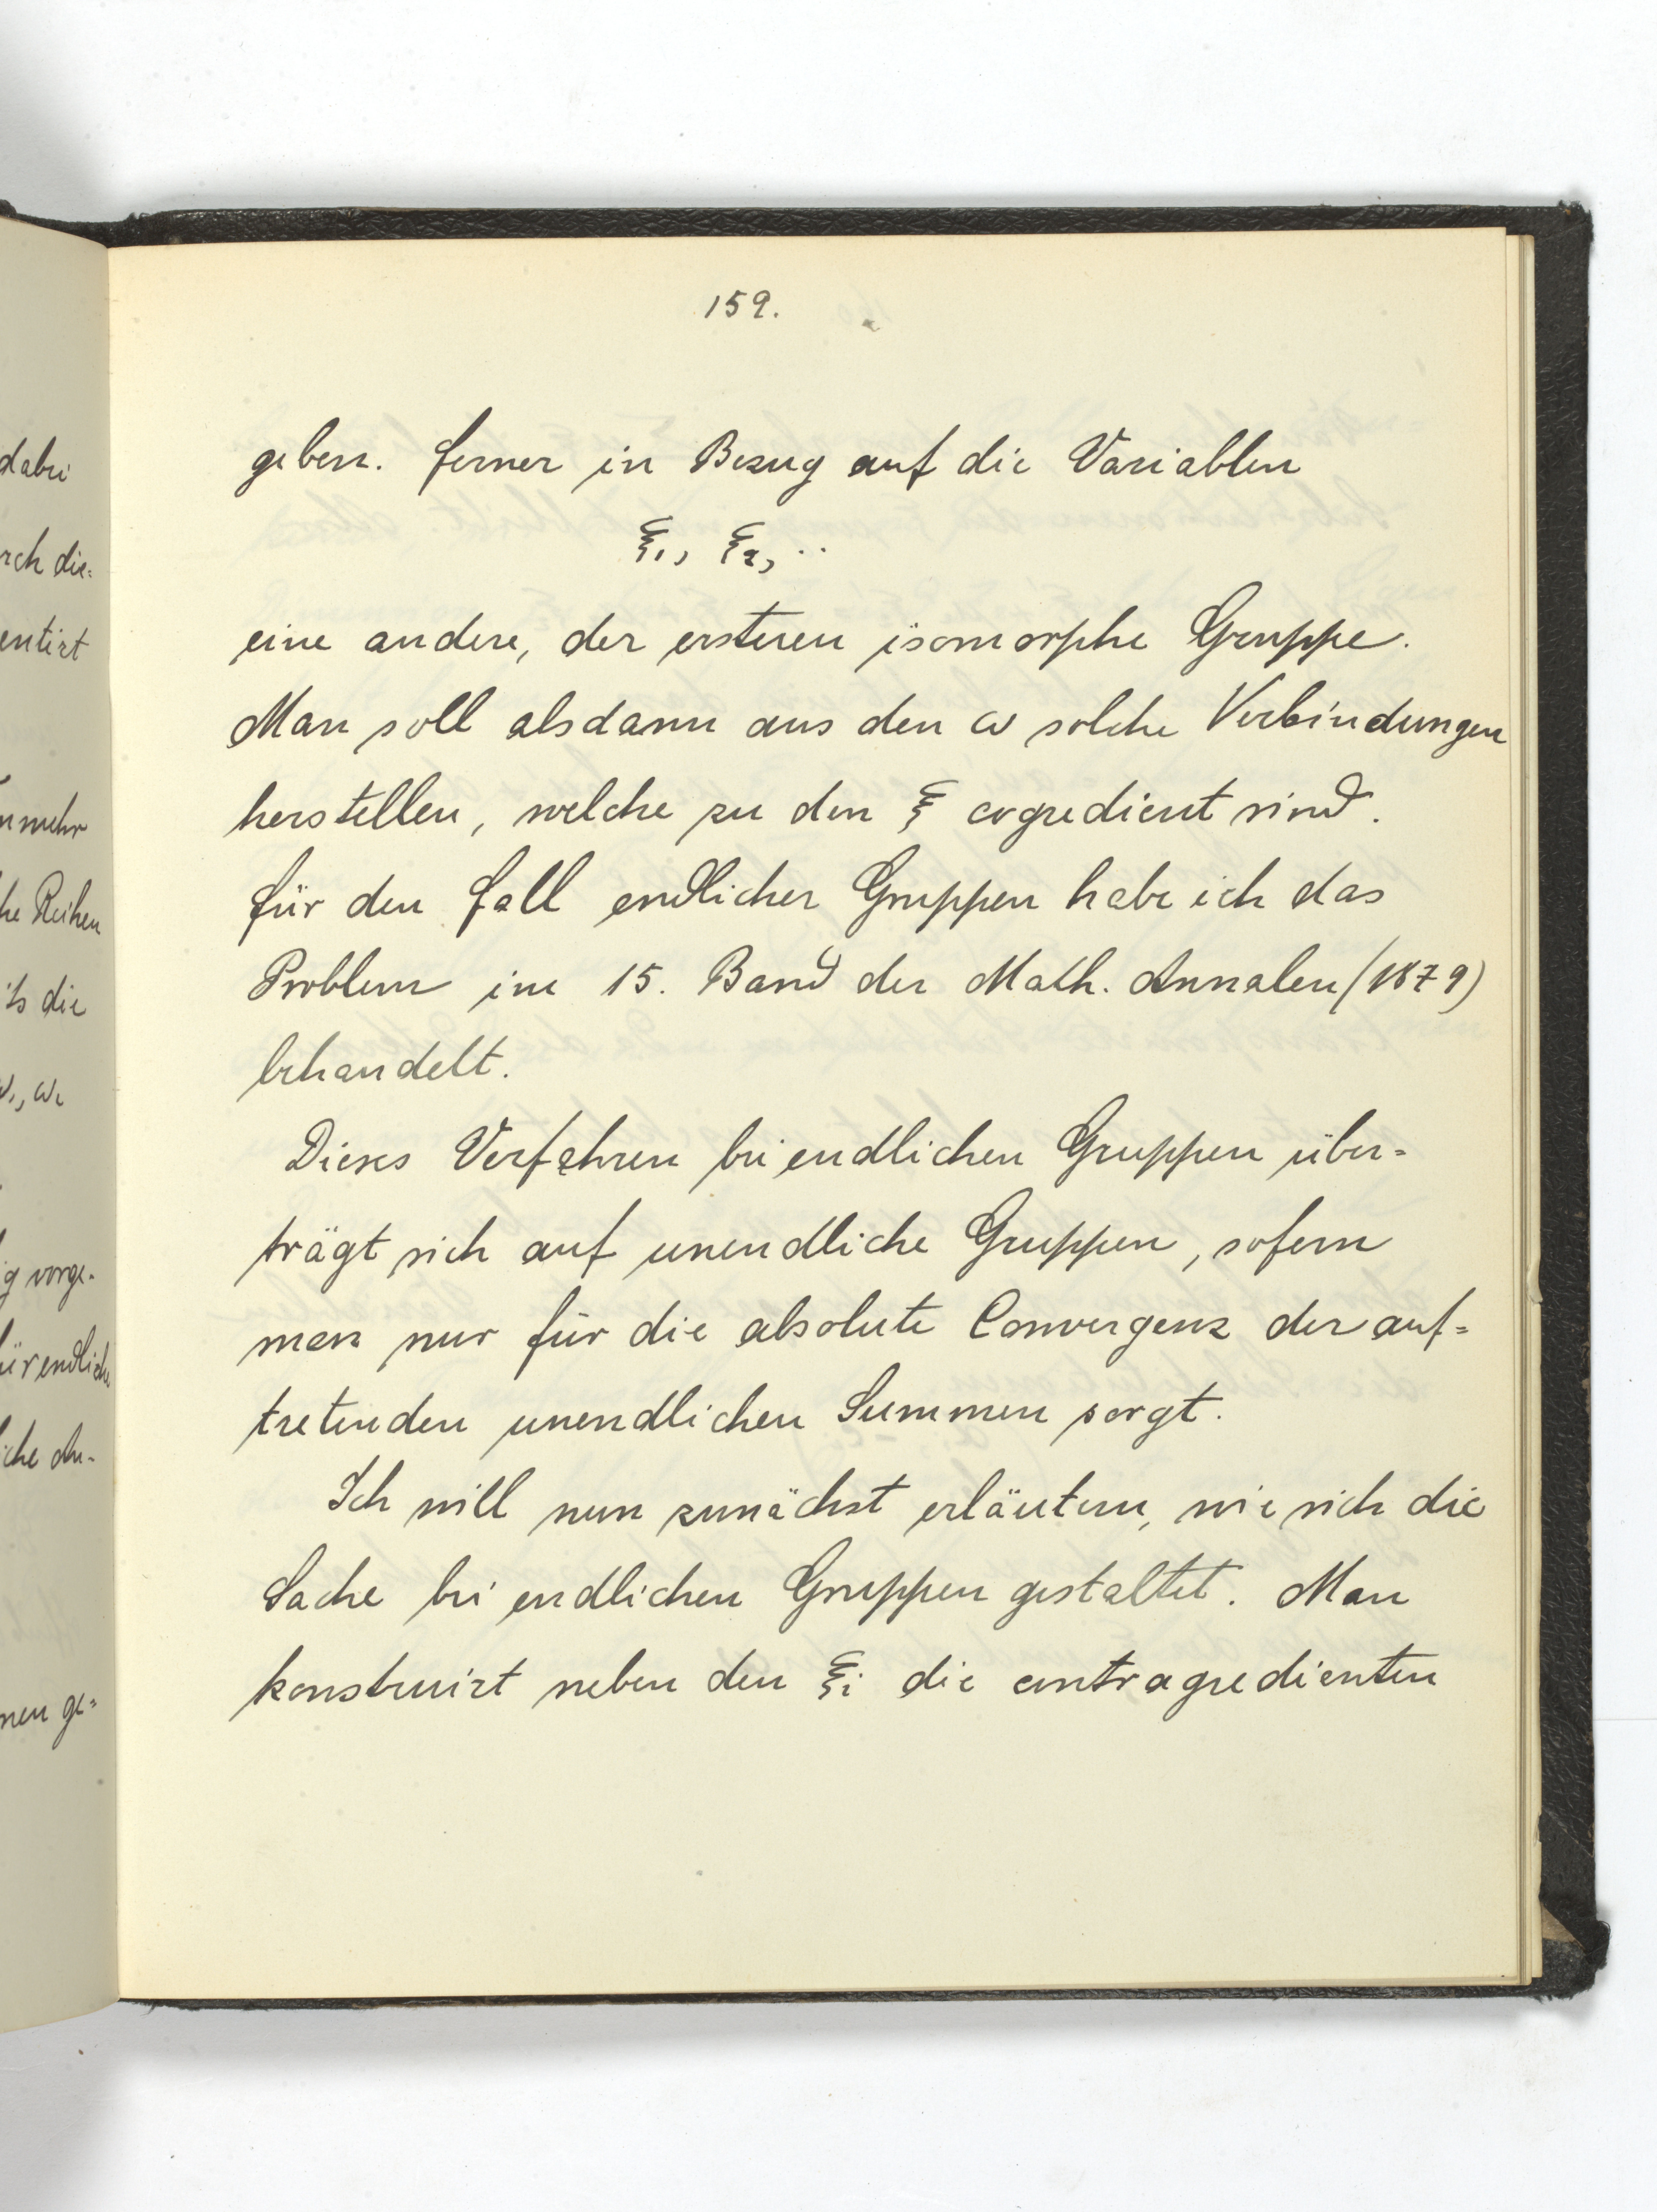 159.
geben. Ferner in Bezug auf die Variablen
ξ₁, ξ₂, ..
eine andere, der ersteren isomorphe Gruppe.
Man soll alsdann aus den ω solche Verbindungen
herstellen, welche zu den ξ cogredient sind.
Für den Fall endlicher Gruppen habe ich das
Problem im 15. Band der Math. Annalen (1879)
behandelt.
Dieses Verfahren bei endlichen Gruppen über-
trägt sich auf unendliche Gruppen, sofern
man nur für die absolute Convergenz der auf-
tretenden unendlichen Summen sorgt.
Ich will nun zunächst erläutern, wie sich die
Sache bei endlichen Gruppen gestaltet. Man
konstruirt neben den ξi die contragredienten
dabei
rch die-
entirt
nmehr
he Reihen
its die
ω₁, ω₂
g vorge-
ür endliche
iche An-
nen ge-